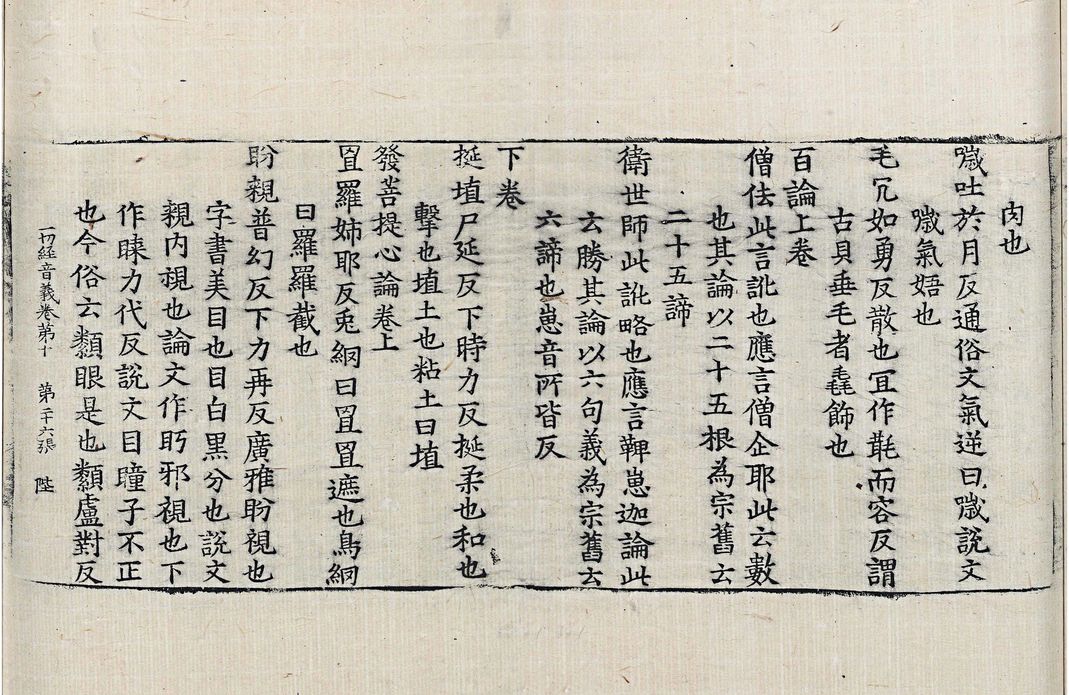 肉也
噦吐於月反通俗文氣逆曰噦說文
噦氣啎也
毛宂如勇反散也冝作㲨而容反謂
古貝垂毛者毳飾也
百論上卷
僧佉此言訛也應言僧企耶此云數
也其論以二十五根為宗舊云
二十五諦
衛世師此訛略也應言鞞崽迦論此
云勝其論以六句義為宗舊云
六諦也崽音所皆反
下卷
挻埴尸延反下時力反挻柔也和也
擊也埴土也粘土曰埴
發菩提心論卷上
罝羅姉耶反兎網曰罝罝遮也鳥網
曰羅羅截也
盼親普幻反下力再反廣雅盼視也
字書美目也目白黑分也說文
親內視也論文作眄邪視也下
作睞力代反說文目瞳子不正
也今俗云纇眼是也纇盧對反
一切経音義卷第十 第二十六張 陛